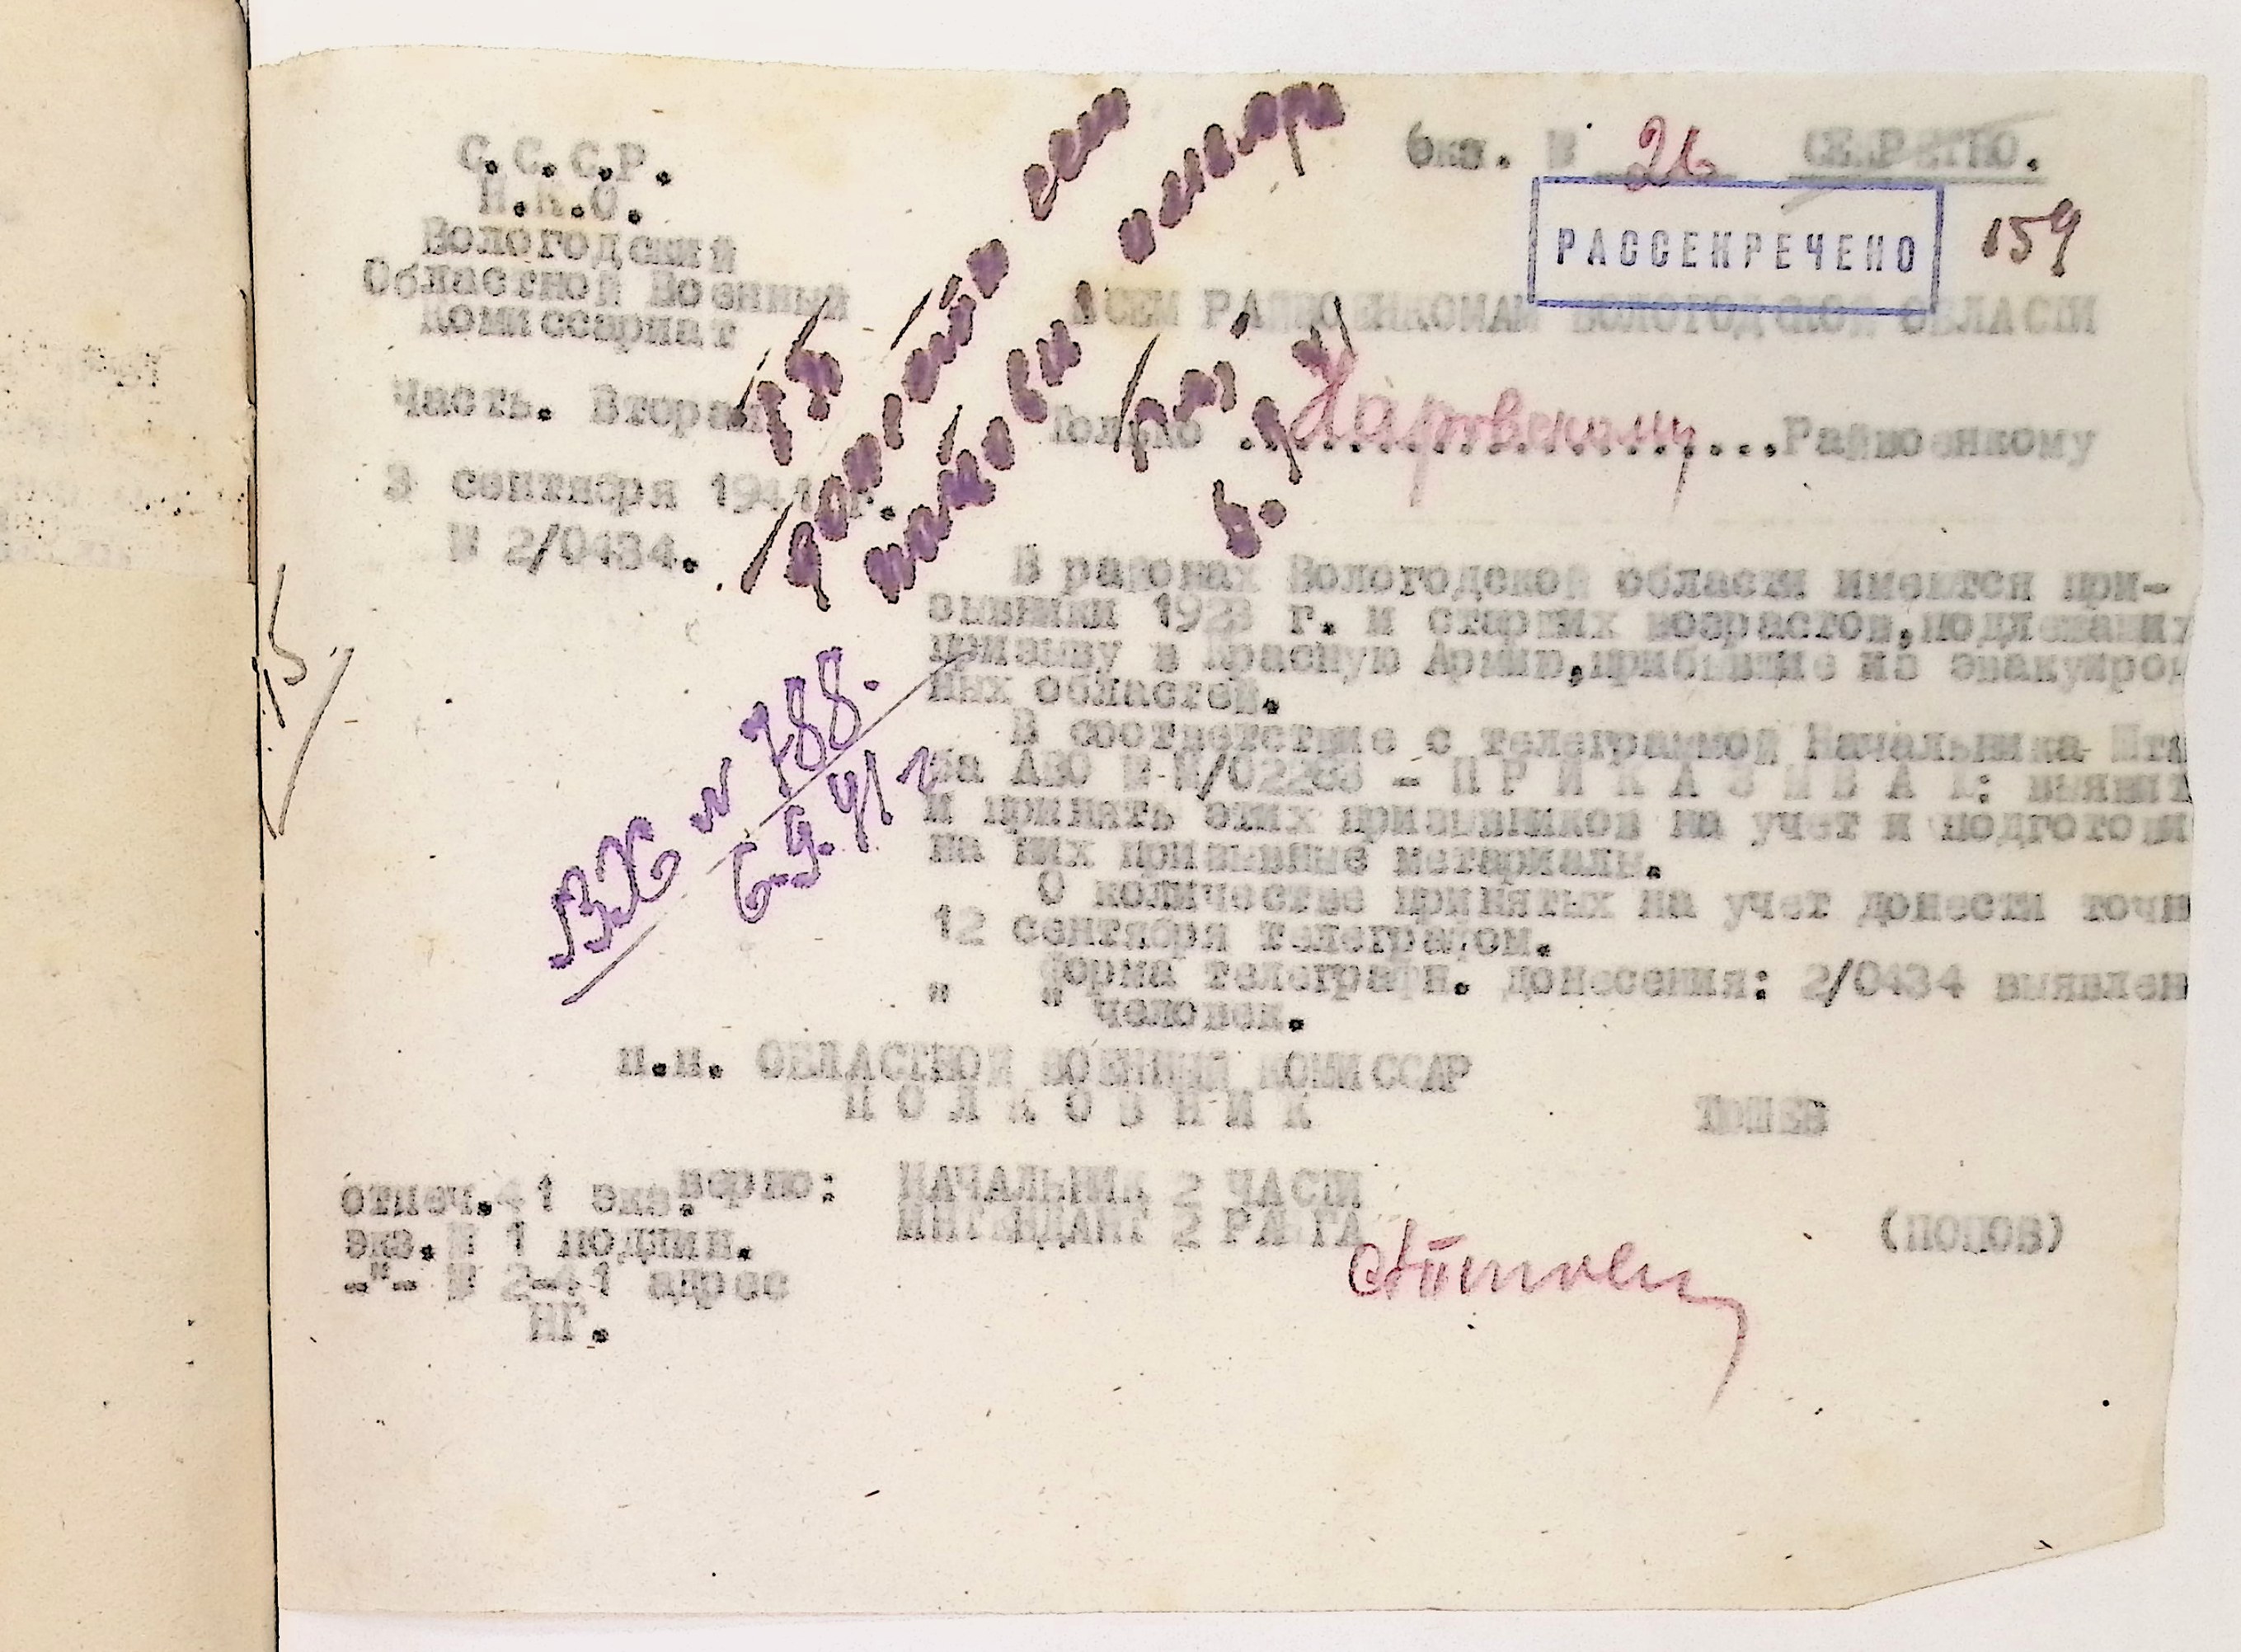 С.С.С.Р.
Н.К.О.
Вологодский
Областной Военный
Комиссариат
Часть. Вторая
3 сентября 1941 г.
№ 2/0434.
экз. № 26 СЕКРЕТНО.
РАССЕКРЕЧЕНО
159
ВСЕМ РАЙВОЕНКОМАМ ВОЛОГОДСКОЙ ОБЛАСТИ
Только ....Харовскому....Райвоенкому
В районах Вологодской области имеются при-
зывники 1923 г. и старших возрастов,подлежащих
призыву в Красную Армию,прибывшие из эвакуиров
ных областей.
В соответствие с телеграммой Начальника Шта
ба АВО № М/02263 - П Р И К А З Ы В А Ю: выявит
и принять этих призывников на учет и подготови
на них призывные материалы.
О количестве принятых на учет донести точн
12 сентября телеграфом.
Форма телеграфн. донесения: 2/0434 выявлен
" " человек.
ВХ № 788.
6.9.41 г
15
п.п. ОБЛАСТНОЙ ВОЕННЫЙ КОМИССАР
П О Л К О В Н И К
верно: НАЧАЛЬНИК 2 ЧАСТИ
ИНТЕНДАНТ 2 РАНГА (ПОПОВ)
отпеч.41 экз.
экз.№ 1 подлин.
-"- № 2-41 адрес
НГ.